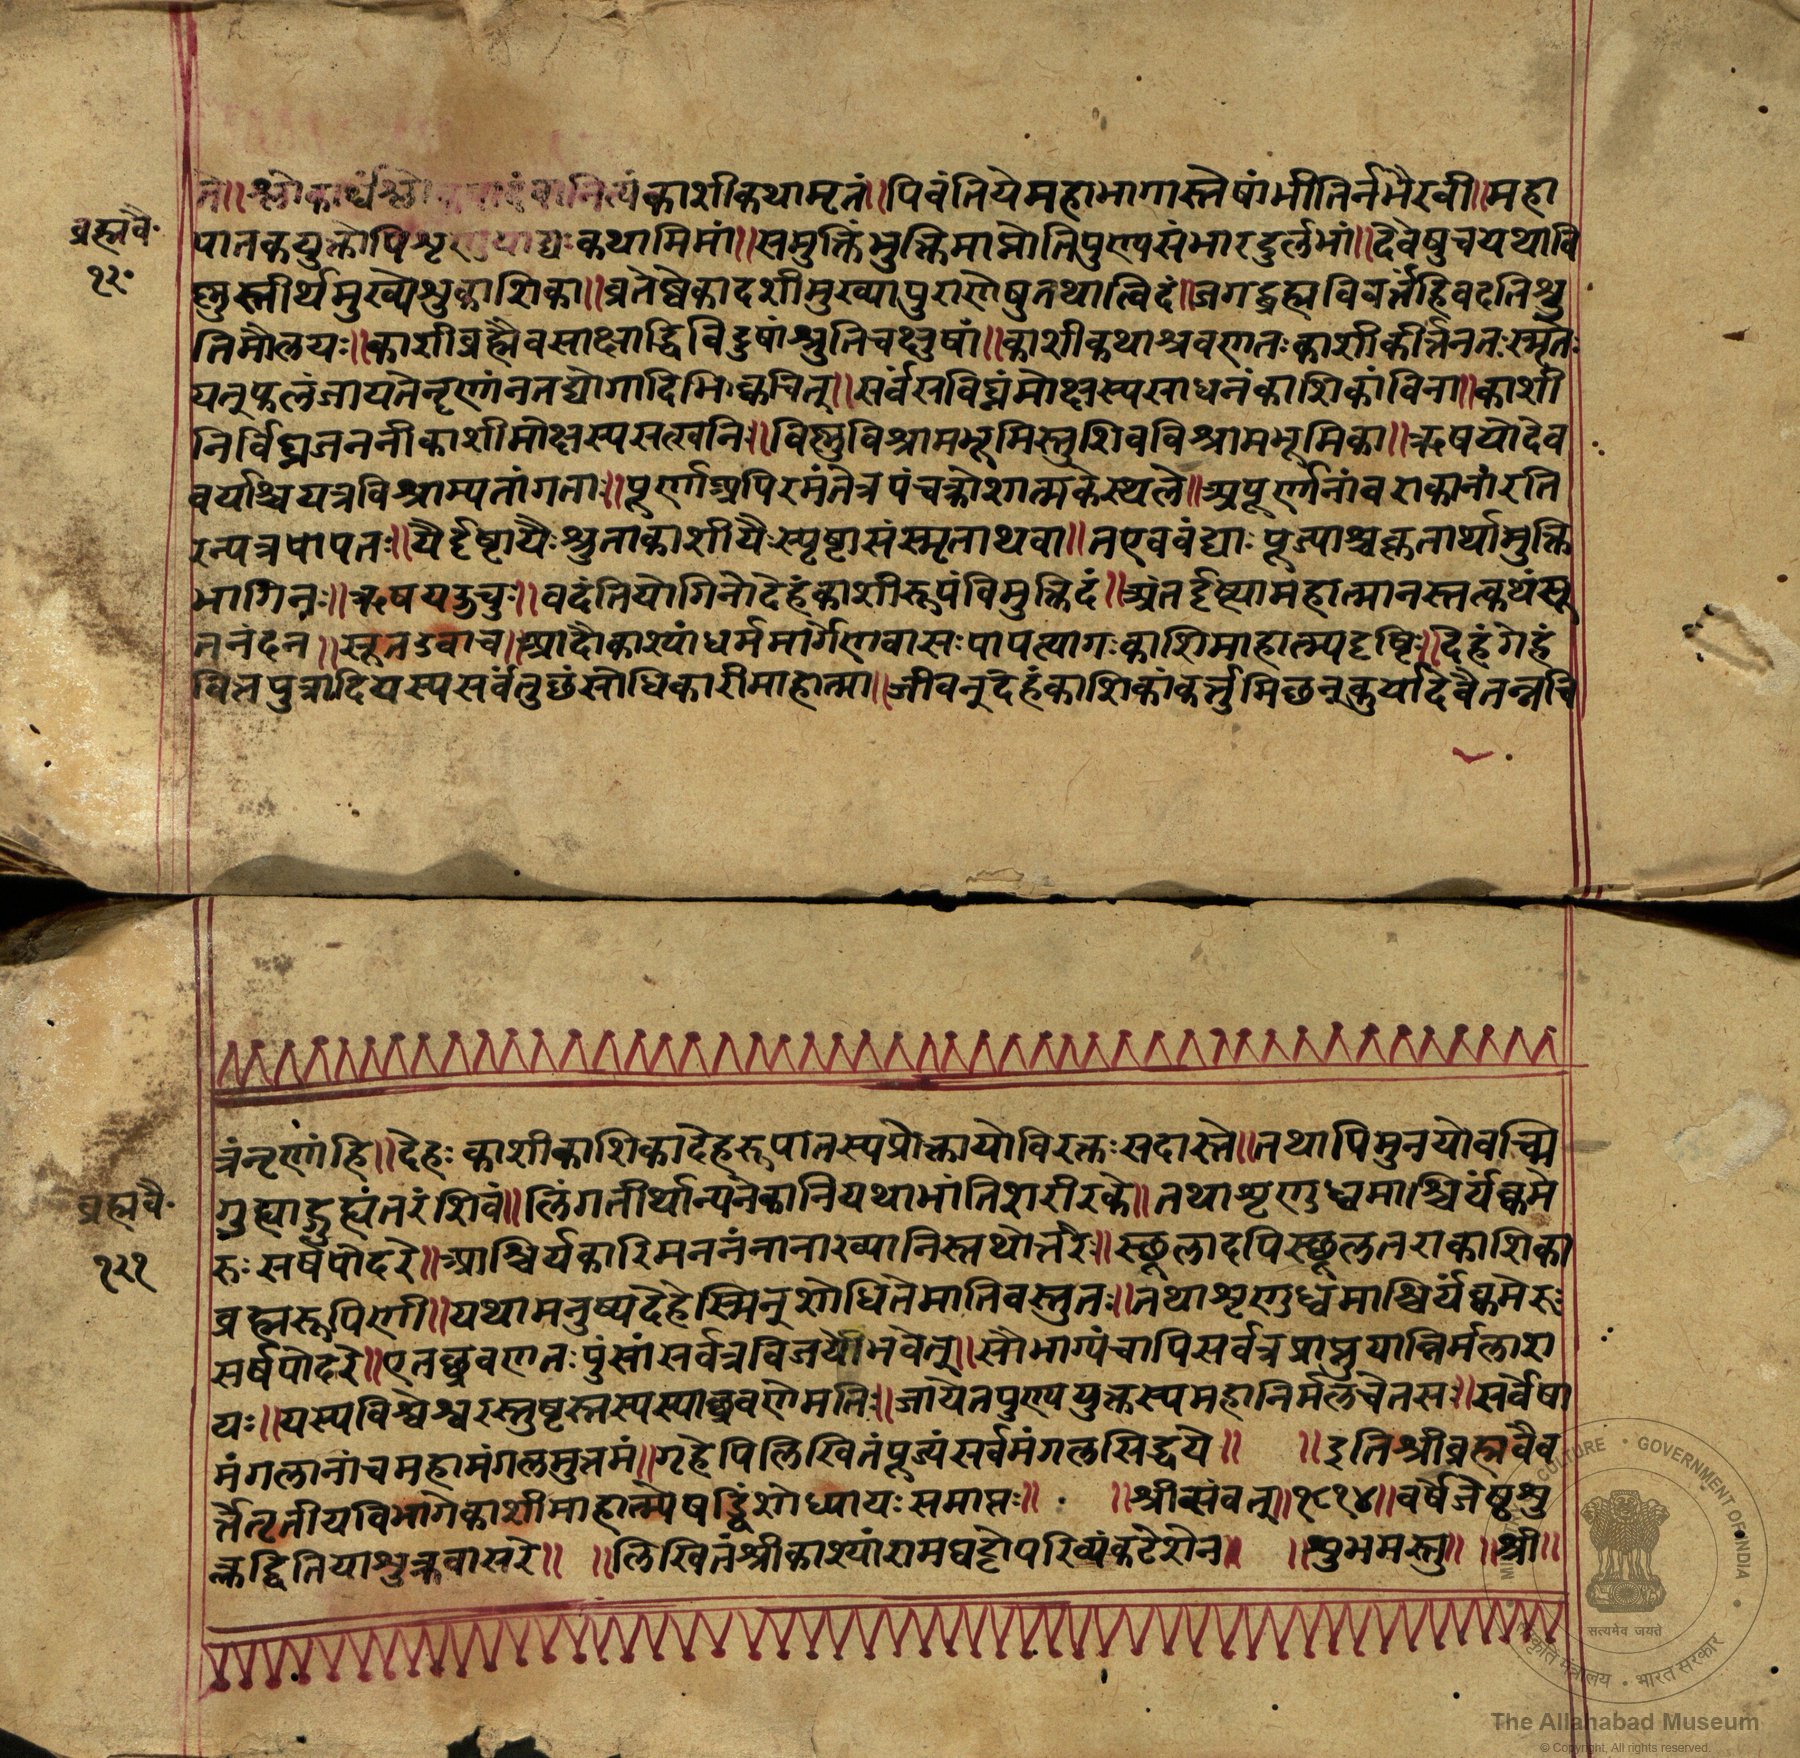 ते॥श्लोकार्धंश्लोकपादंवानित्यंकाशीकथामृतं॥पिवंतियेमहाभागास्तेषांभीतिर्नभैरवी॥महा
ब्रह्मवै॰
१२०
पातकयुक्तोपिशृणुयाद्यःकथामिमां॥समुक्तिंभुक्तिमाप्नोतिपुण्यसंभारदुर्लभां॥देवेषुचयथावि
ष्णुस्तीर्थमुख्येषुकाशिका॥व्रतेष्वेकादशीमुख्यापुराणेषुतथात्विदं॥जगद्ब्रह्मविवर्त्तंहिवदतिश्रु
तिमौलयः॥काशीब्रह्मैवसाक्षाद्धिविदुषांश्रुतिचक्षुषां॥काशीकथाश्रवणतःकाशीकीर्त्तनतःस्मृतेः
यत्फलंजायतेनृणांनतद्योगादिभिःक्वचित्॥सर्वंसविघ्नंमोक्षस्यसाधनंकाशिकांविना॥काशी
निर्विघ्नजननीकाशीमोक्षस्यसत्खनिः॥विष्णुविश्रामभूमिस्तुशिवविश्रामभूमिका॥ऋषयोदेव
वर्याश्चियत्रविश्राम्यतांगताः॥पूर्णाअपिरमंतेत्रपंचक्रोशात्मकेस्थले॥अपूर्णानांवराकानांरति
रन्यत्रपापतः॥यैर्दृष्टायैःश्रुताकाशीयैःस्पृष्टासंस्मृताथवा॥तएववंद्याःपूज्याश्चकृतार्थामुक्ति
भागिनः॥ऋषयऊचुः॥वदंतियोगिनोदेहंकाशीरूपंविमुक्तिदं॥अंतर्दृष्ट्यामहात्मानस्तत्कथंसू
तनंदन॥सूतउवाच॥आदौकाश्यांधर्ममार्गेणवासःपापत्यागःकाशिमाहात्म्यदृष्टिः॥देहंगेहं
वित्तपुत्रादियस्यसर्वंतुछंसोधिकारीमाहात्मा॥जीवन्देहंकाशिकांकर्तुमिछन्कुर्यादेवैतन्नचि
त्रंनृणांहि॥देहःकाशीकाशिकादेहरूपातस्यप्रोक्तायोविरक्तःसदास्ते॥तथापिमुनयोवच्मि
ब्रह्मवै॰
१२१
गुह्याद्गुह्यंतरंशिवं॥लिंगतीर्थान्यनेकानियथाभांतिशरीरके॥तथाशृणुध्वमाश्चिर्यंष्कमे
रुःसर्षपोदरे॥आश्चिर्यकारिमननंनानाख्यानिस्तथोत्तरैः॥स्छूलादपिस्छूलतराकाशिका
ब्रह्मरूपिणी॥यथामनुष्यदेहेस्मिन्शोधितेमातिवस्तुतः॥तथाशृणुध्वमाश्चिर्यंष्कमेरुः
सर्षपोदरे॥एतछ्रवणतःपुंसांसर्वत्रविजयोभवेत्॥सौभाग्यंचापिसर्वत्रप्राप्नुयान्निर्मलाश
यः॥यस्यविश्वेश्वरस्तुष्टस्तस्यस्याछ्रवणेमतिः॥जायेतपुण्ययुक्तस्यमहानिर्मलचेतसः॥सर्वेषा
मंगलानांचमहामंगलमुत्तमं॥गृहेपिलिखितंपूज्यंसर्वमंगलसिद्धये॥ ॥इतिश्रीब्रह्मवैव
र्त्तेतृतीयविभागेकाशीमाहात्म्येषड्विंशोध्यायःसमाप्तः॥ ॥श्रीसंवत्॥१८१४॥वर्षेजेष्ठशु
क्लद्वितियाशुक्रवासरे॥ ॥लिखितंश्रीकाश्यांरामघट्टोपरिव्यंकटेशेन॥ ॥शुभमस्तु॥ ॥श्री॥
GOVERNMENT OF INDIA
MINISTRY OF CULTURE
सत्यमेव जयते
संस्कृति मंत्रालय • भारत सरकार
The Allahabad Museum
© Copyright, All rights reserved.